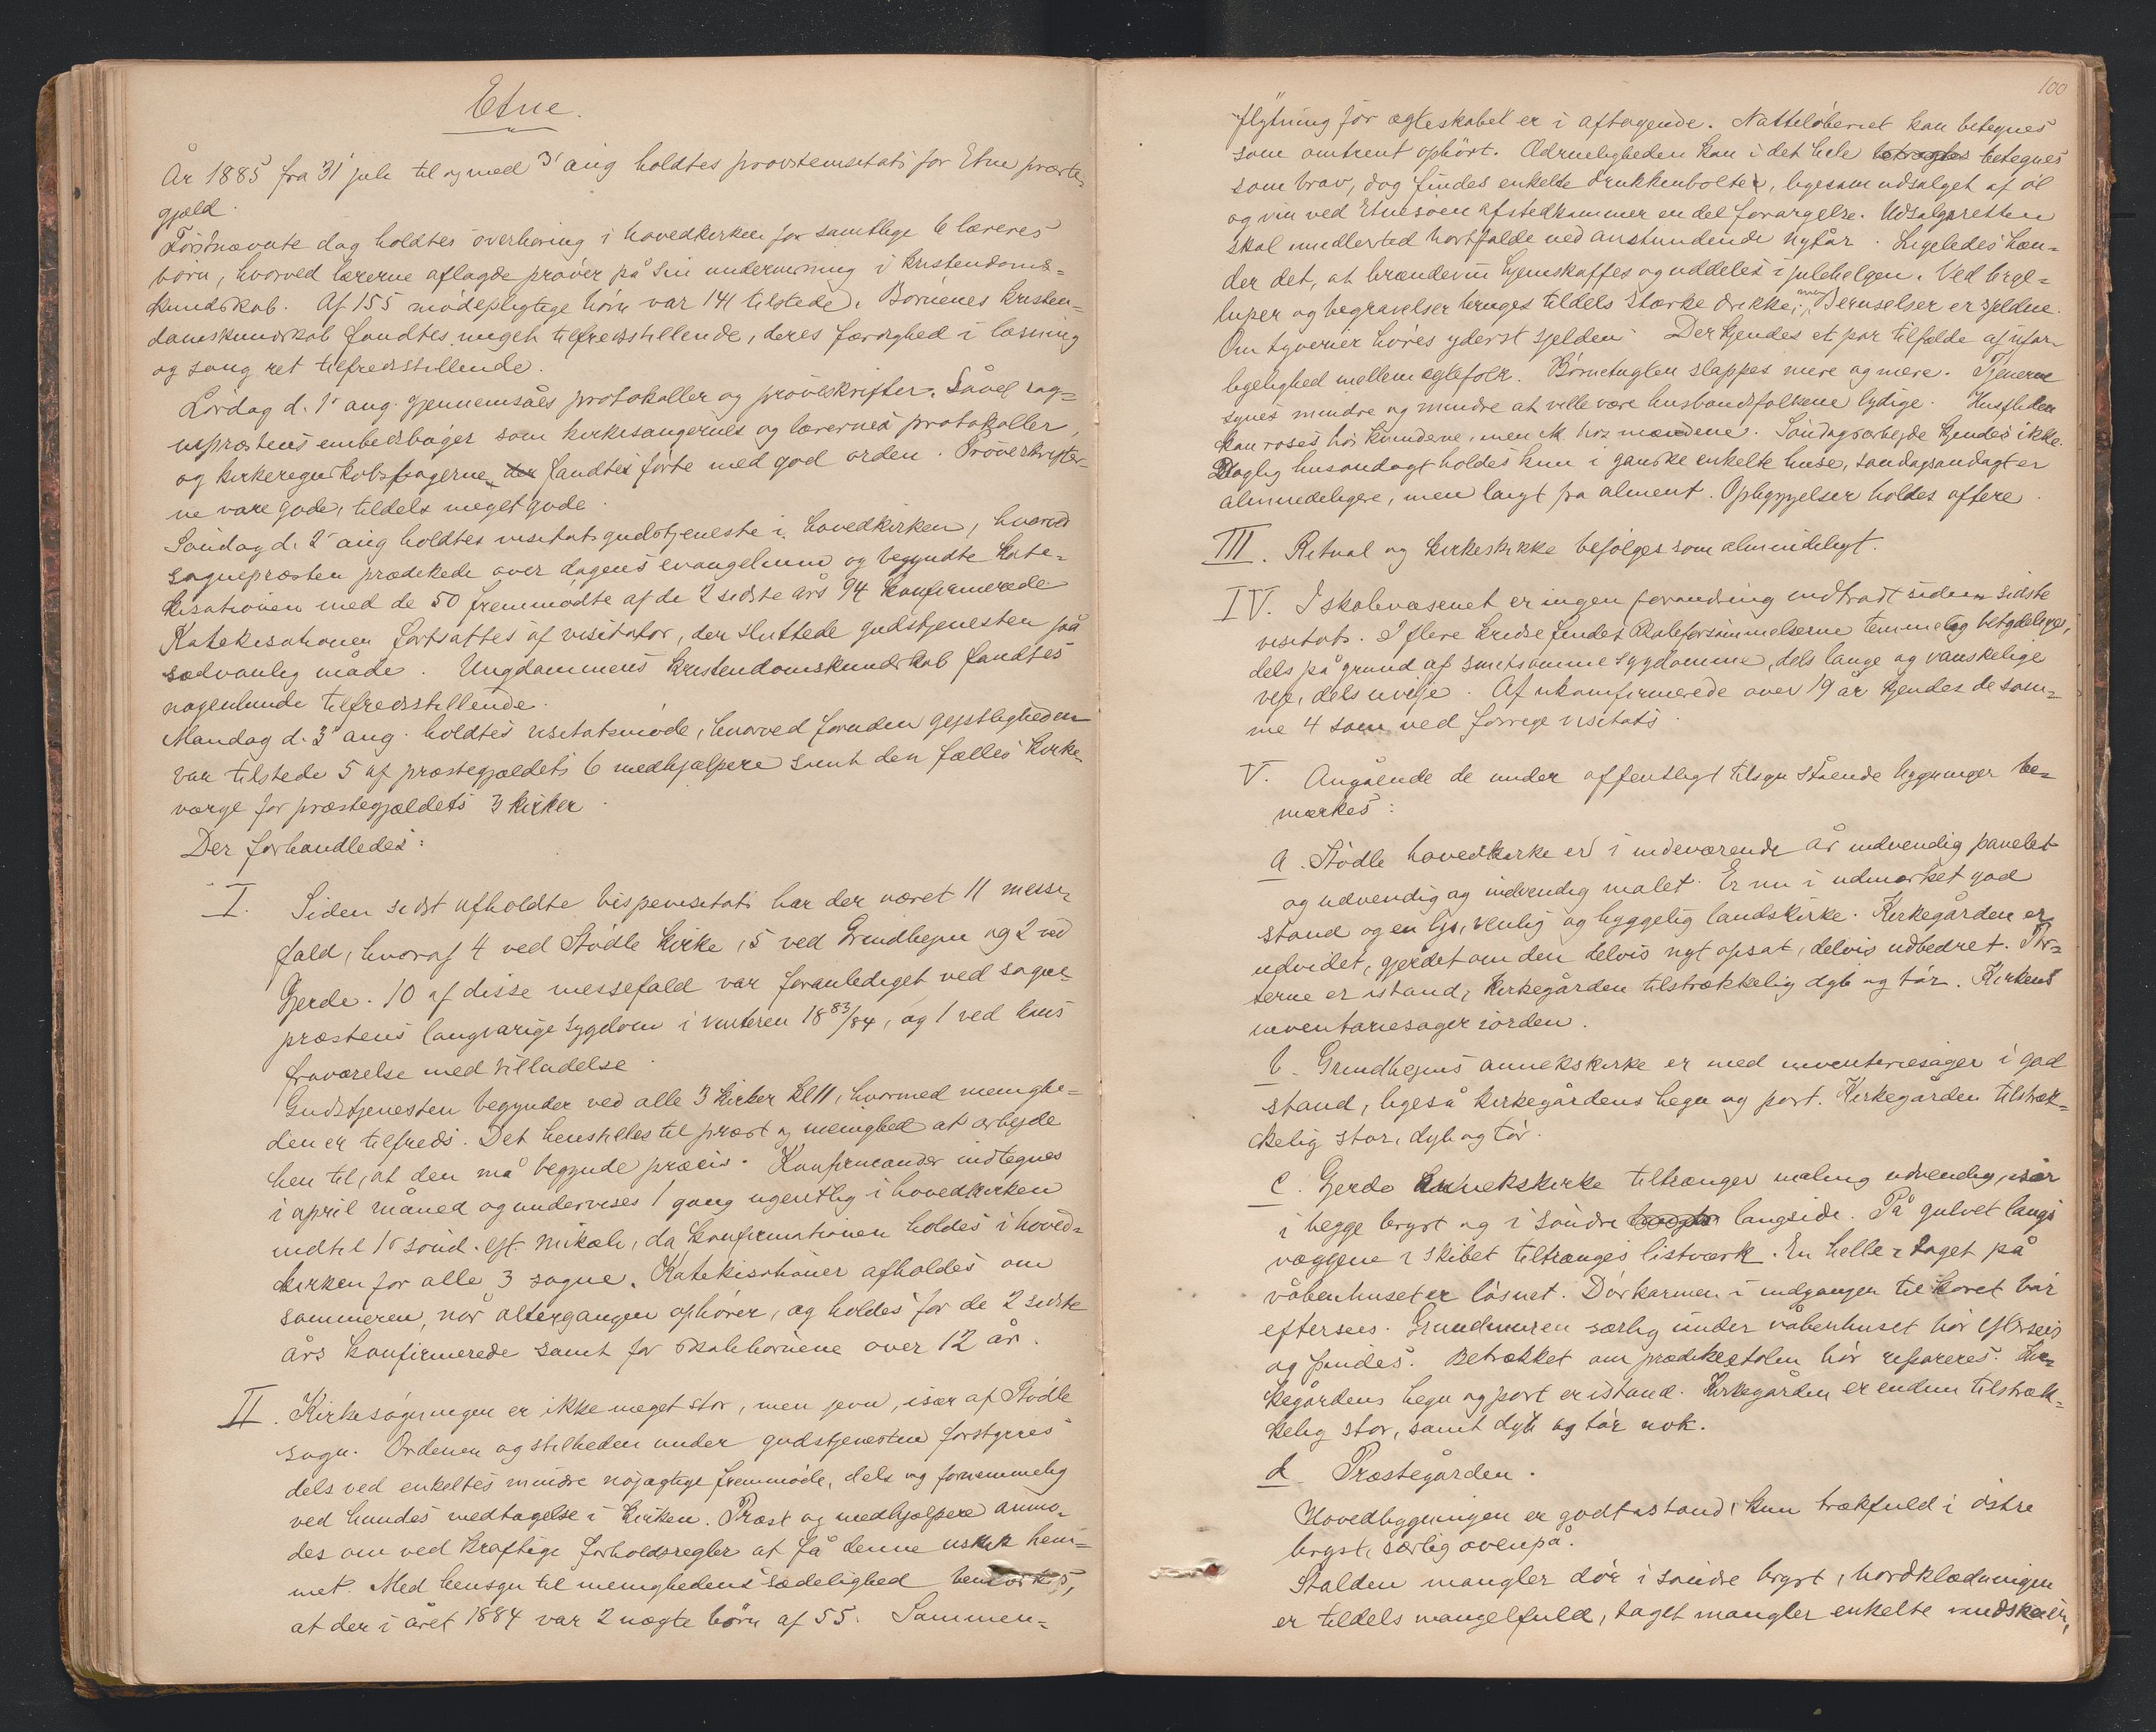 Etne.
År 1885 fra 31' juli til og med 3' aug holdtes provstevisitats for Etne præste-
gjæld.
Førstnævnte dag holdtes overhøring i hovedkirken for samtlige 6 læreres
børn, hvorved lærerne aflagde prøver på sin undervisning i kristendoms-
kundskab. Af 155 mødepligtige børn var 141 tilstede. Børnenes kristen-
domskundskab fandtes meget tilfredsstillende, deres færdighed i læsning
og sang ret tilfredsstillende.
Lørdag d. 1' aug. gjennemsåes protokoller og prøveskrifter. Såvel sog-
nepræstens embedsbøger som kirkesangernes og lærernes protokoller,
og kirkeregnskabsbøgerne der fandtes førte med god orden. Prøveskrifter-
ne vare gode, tildels meget gode.
Søndag d. 2' aug holdtes visitatsgudstjeneste i hovedkirken, hvorved
sognepræsten prædikede over dagens evangelium og begyndte kate-
kisationen med de 50 fremmødte af de 2 sidste års 94 konfirmerede
Katekisationen fortsattes af visitator, der sluttede gudstjenesten på
sædvanlig måde. Ungdommens kristendomskundskab fandtes
nogenlunde tilfredsstillende.
Mandag d. 3' aug. holdtes visitatsmøde, hvorved foruden gejstligheden
var tilstede 5 af præstegjældets 6 medhjælpere samt den fælles kirke-
værge for præstegjældets 3 kirker.
Der forhandledes:
I. Siden sidst afholdte bispevisitats har der været 11 messe-
fald, hvoraf 4 ved Stødle kirke, 5 ved Grindhejm og 2 ved
Gjerde. 10 af disse messefald var foranlediget ved sogne-
præstens langvarige sygdom i vinteren 1883/84, og 1 ved hans
fraværelse med tilladelse.
Gudstjenesten begynder ved alle 3 kirker kl 11, hvormed menighe-
den er tilfreds. Det henstilles til præst og menighed at arbejde
hen til, at den må begynde præcis. Konfirmander indtegnes
i april måned og undervises 1 gang ugentlig i hovedkirken
indtil 1' sønd. eft. Mikali, da konfirmationen holdes i hoved-
kirken for alle 3 sogne. Katekisationer afholdes om
sommeren, når altergangen ophører, og holdes for de 2 sidste
års konfirmerede samt for skolebørnene over 12 år.
II. Kirkesøgningen er ikke meget stor, men jevn, især af Stødle
sogn. Ordenen og stilheden under gudstjenesten forstyrres
dels ved enkeltes mindre nøjagtige fremmøde, dels og fornemmelig
ved hundes medtagelse i kirken. Præst og medhjælpere anmo-
des om ved kraftige forholdsregler at få denne uskik hem-
met. Med hensyn til menighedens sædelighed bemærkes,
at der i året 1884 var 2 uægte børn af 55. Sammen-
100
"flytning før ægteskabet" er i aftagende. Natteløberiet kan betegnes
som omtrent ophørt. Ædrueligheden kan i det hele betragtes betegnes
som brav, dog findes enkelte drukkenbolte, ligesom udsalget af øl
og vin ved Etnesøen afstedkommer en del forargelse. Udsalgsretten
skal imidlertid bortfalde ved anstundende nytår. Ligeledes hæn-
der det, at brændevin hjemskaffes og uddeles i julehelgen. Ved bryl-
luper og begravelser bruges tildels stærke drikke; men beruselser er sjeldne.
Om tyverier høres yderst sjelden. Der kjendes et par tilfælde af ufor-
ligelighed mellem ægtefolk. Børnetugten slappes mere og mere. Tjenerne
synes mindre og mindre at ville være husbondsfolkene lydige. Husfliden
kan roses hos kvinderne, men ikke hos mændene. Søndagsarbejde kjendes ikke.
Daglig husandagt holdes kun i ganske enkelte huse, søndagsandagt er
almindeligere, men langt fra alment. Opbyggelser holdes oftere.
III. Ritual og kirkeskikke befølges som almindeligt.
IV. I skolevæsenet er ingen forandring indtrådt siden sidste
visitats. I flere kredse findes skoleforsømmelserne temmelig betydelige,
dels på grund af smitsomme sygdomme, dels lange og vanskelige
veje, dels uvilje. Af ukonfirmerede over 19 år kjendes de sam-
me 4 som ved forrige visitats.
V. Angående de under offentligt tilsyn stående bygninger be-
mærkes:
a. Stødle hovedkirke er i indeværende år indvendig panelet
og udvendig og indvendig malet. Er nu i udmærket god
stand og en lys, venlig og hyggelig landskirke. Kirkegården er
udvidet, gjerdet om den delvis nyt opsat, delvis udbedret. Por-
terne er istand, kirkegården tilstrækkelig dyb og tør. Kirkens
inventariesager i orden.
b. Grindhejms annekskirke er med inventariesager i god
stand, ligeså kirkegårdens hegn og port. Kirkegården tilstræk-
kelig stor, dyb og tør.
c. Gjerde annekskirke tiltrænger maling udvendig, især
i begge bryst og i søndre langside. På gulvet langs
væggene i skibet tiltrænges listværk. En helle i taget på
våbenhuset er løsnet. Dørkarmen i indgangen til koret bør
efterses. Grundmuren særlig under våbenhuset bør efterses
og pindes. Betrækket om prædikestolen bør repareres. Kir-
kegårdens hegn og port er istand. Kirkegården er endnu tilstræk-
kelig stor, samt dyb og tør nok.
d. Præstegården.
Hovedbygningen er godt istand, kun trækfuld i østre
bryst, særlig ovenpå.
Stalden mangler dør i søndre bryst, bordklædningen
er tildels mangelfuld, taget mangler enkelte vindskeier,